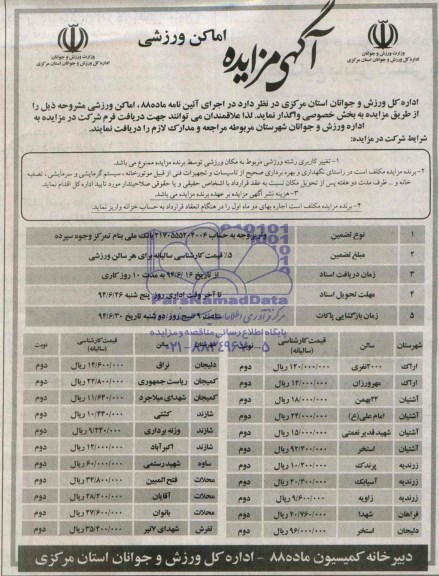 وزارت ورزش و جوانان
اداره کل ورزش و جوانان استان مرکزی
آگهی مزایده
اماکن ورزشی
وزارت ورزش و جوانان
اداره کل ورزش و جوانان استان مرکزی
اداره کل ورزش و جوانان استان مرکزی در نظر دارد در اجرای آئین نامه ماده۸۸، اماکن ورزشی مشروحه ذیل را
از طریق مزایده به بخش خصوصی واگذار نماید. لذا علاقمندان می توانند جهت دریافت فرم شرکت در مزایده به
اداره ورزش و جوانان شهرستان مربوطه مراجعه و مدارک لازم را دریافت نمایند.
شرایط شرکت در مزایده:
۱- تغییر کاربری رشته ورزشی مربوط به مکان ورزشی توسط برنده مزایده ممنوع می باشد.
۲- برنده مزایده مکلف است در راستای نگهداری و بهره برداری صحیح از تاسیسات و تجهیزات فنی از قبیل موتورخانه، سیستم گرمایشی و سرمایشی، تصفیه
خانه و ... ظرف مدت دو هفته پس از تحویل مکان نسبت به عقد قرارداد با اشخاص حقیقی و یا حقوقی صلاحیتدار مورد تایید اداره کل اقدام نماید.
۳- هزینه نشر آگهی مزایده بر عهده برنده مزایده می باشد.
۴- برنده مزایده مکلف است اجاره بهای دو ماه اول را در هنگام انعقاد قرارداد به حساب خزانه واریز نماید.
۱ نوع تضمین واریز وجه به حساب ۲۱۷۰۵۵۵۲۰۴۰۰۶ بانک ملی بنام تمرکز وجوه سپرده
۲ مبلغ تضمین ۵٪ قیمت کارشناسی سالیانه برای هر سالن ورزشی
۳ زمان دریافت اسناد از تاریخ ۹۴/۶/۱۶ به مدت ۱۰ روز کاری
۴ مهلت تحویل اسناد تا آخر وقت اداری روز پنج شنبه ۹۴/۶/۲۶
۵ زمان بازگشایی پاکات ساعت ۹ صبح روز دو شنبه تاریخ ۹۴/۶/۳۰
ParsNamadData
پایگاه اطلاع رسانی مناقصه و مزایده
۰۲۱-۸۸۳۴۹۶۷۰-۵
شهرستان سالن قیمت کارشناسی (سالیانه) نوبت شهرستان سالن قیمت کارشناسی (سالیانه) نوبت
اراک ۲۰۰۰نفری ۱۲۰/۰۰۰/۰۰۰ ریال دوم دلیجان نراق ۱۲/۶۰۰/۰۰۰ ریال دوم
اراک مهرورزان ۱۲/۰۰۰/۰۰۰ ریال دوم کمیجان ریاست جمهوری ۲۲/۸۰۰/۰۰۰ ریال دوم
آشتیان ۲۲بهمن ۱۸/۰۰۰/۰۰۰ ریال دوم کمیجان شهدای میلاجرد ۱۱/۶۴۰/۰۰۰ ریال دوم
آشتیان امام علی(ع) ۲۴/۰۰۰/۰۰۰ ریال دوم شازند کتثی ۱۰/۴۴۰/۰۰۰ ریال دوم
آشتیان شهید قدیر نعمتی ۱۵/۰۰۰/۰۰۰ ریال دوم شازند وزنه برداری ۹/۲۴۰/۰۰۰ ریال دوم
آشتیان استخر ۹۲/۴۰۰/۰۰۰ ریال دوم شازند اکبرآباد ۱۲/۰۰۰/۰۰۰ ریال دوم
زرندیه پرندک ۱۰/۲۰۰/۰۰۰ ریال دوم ساوه شهید رستمی ۶۰/۰۰۰/۰۰۰ ریال دوم
زرندیه آسیابک ۲۰/۴۰۰/۰۰۰ ریال دوم محلات فتح المبین ۳۲/۸۰۰/۰۰۰ ریال دوم
زرندیه زاویه ۹/۶۰۰/۰۰۰ ریال دوم محلات آقایان ۲۸/۲۰۰/۰۰۰ ریال دوم
فراهان شهدا ۴۰/۷۶۰/۰۰۰ ریال دوم محلات بانوان ۲۷/۶۰۰/۰۰۰ ریال دوم
دلیجان استخر ۹۶/۰۰۰/۰۰۰ ریال دوم تفرش شهدای ۷تیر ۳۵/۴۰۰/۰۰۰ ریال دوم
دبیرخانه کمیسیون ماده۸۸ - اداره کل ورزش و جوانان استان مرکزی